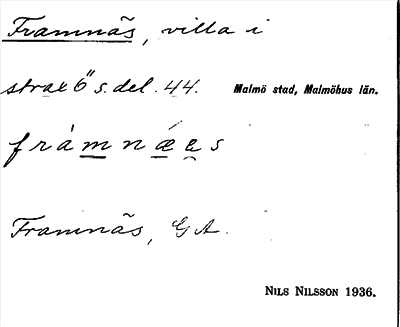 Framnäs, villa i
strax ö s. del. 44. Malmö stad, Malmöhus län.
fràmnǽɛs
Framnäs, G A.
NILS NILSSON 1936.